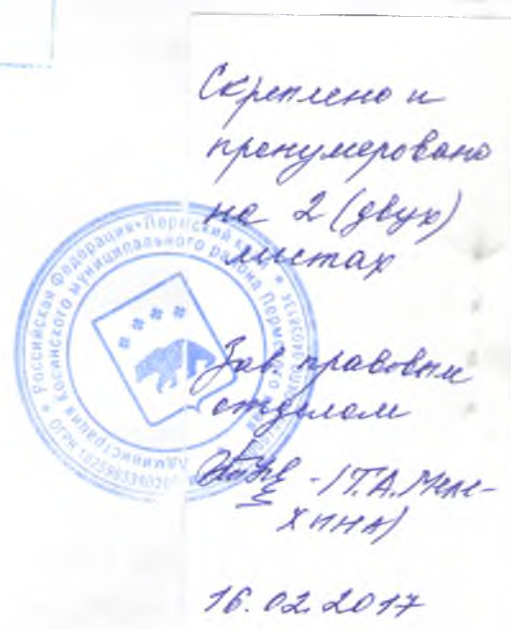 Скреплено и
пронумеровано
на 2 (двух)
листах
Зав. правовым
отделом
-/Т.А. Меле-
хина/
16.02.2017
Российская Федерация • Пермский край
Администрация Косинского муниципального района Пермского